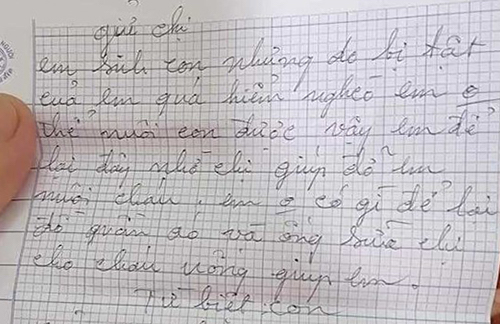 gửi chị
em sinh con nhưng do bị tật
của em quá hiểm nghèo em o
thể nuôi con được vậy em để
lại đây nhờ chị giúp đỡ em
nuôi cháu, em o có gì để lại
đồ quần áo và ống sữa chị
cho cháu uống giúp em.
Từ biệt con